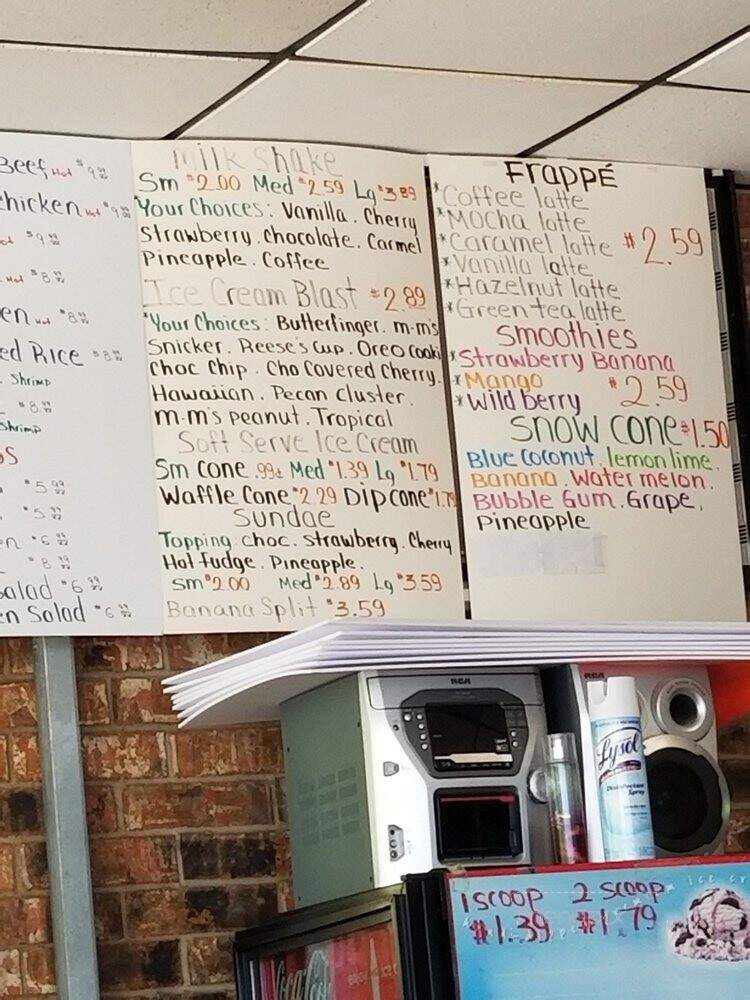 Beef Hot $9.99
chicken Hot $9.99
$9.99
Hot $8.99
en Hot $8.99
ed Rice $8.99
Shrimp
$8.99
Shrimp
s
$5.99
$5.99
n $6.99
$8.99
Salad $6.99
en Salad $6.99
milk shake
Sm $2.00 Med $2.59 Lg $3.89
*Your Choices: Vanilla. Cherry
Strawberry. Chocolate. Carmel
Pineapple. Coffee
Ice Cream Blast $2.89
*Your Choices: Butterfinger. m-m's
Snicker. Reese's Cup. Oreo Cooki
Choc Chip. Cho Covered Cherry.
Hawaiian. Pecan Cluster.
m-m's peanut. Tropical
Soft Serve Ice Cream
Sm Cone .99¢ Med $1.39 Lg $1.79
Waffle Cone $2.29 Dip cone $1.79
Sundae
Topping choc. Strawberry. Cherry
Hot fudge. Pineapple.
Sm $2.00 Med $2.89 Lg $3.59
Banana Split $3.59
Frappé
*Coffee latte
*Mocha latte
*Caramel latte $2.59
*Vanilla latte
*Hazelnut latte
*Green tea latte
Smoothies
*Strawberry Banana
*Mango $2.59
*Wild berry
Snow Cone $1.50
Blue Coconut. lemon lime.
Banana. Water melon.
Bubble Gum. Grape.
Pineapple
RCA
RCA
Lysol
Disinfectant
Spray
1 scoop 2 scoop
$1.39 $1.79
Coca-Cola